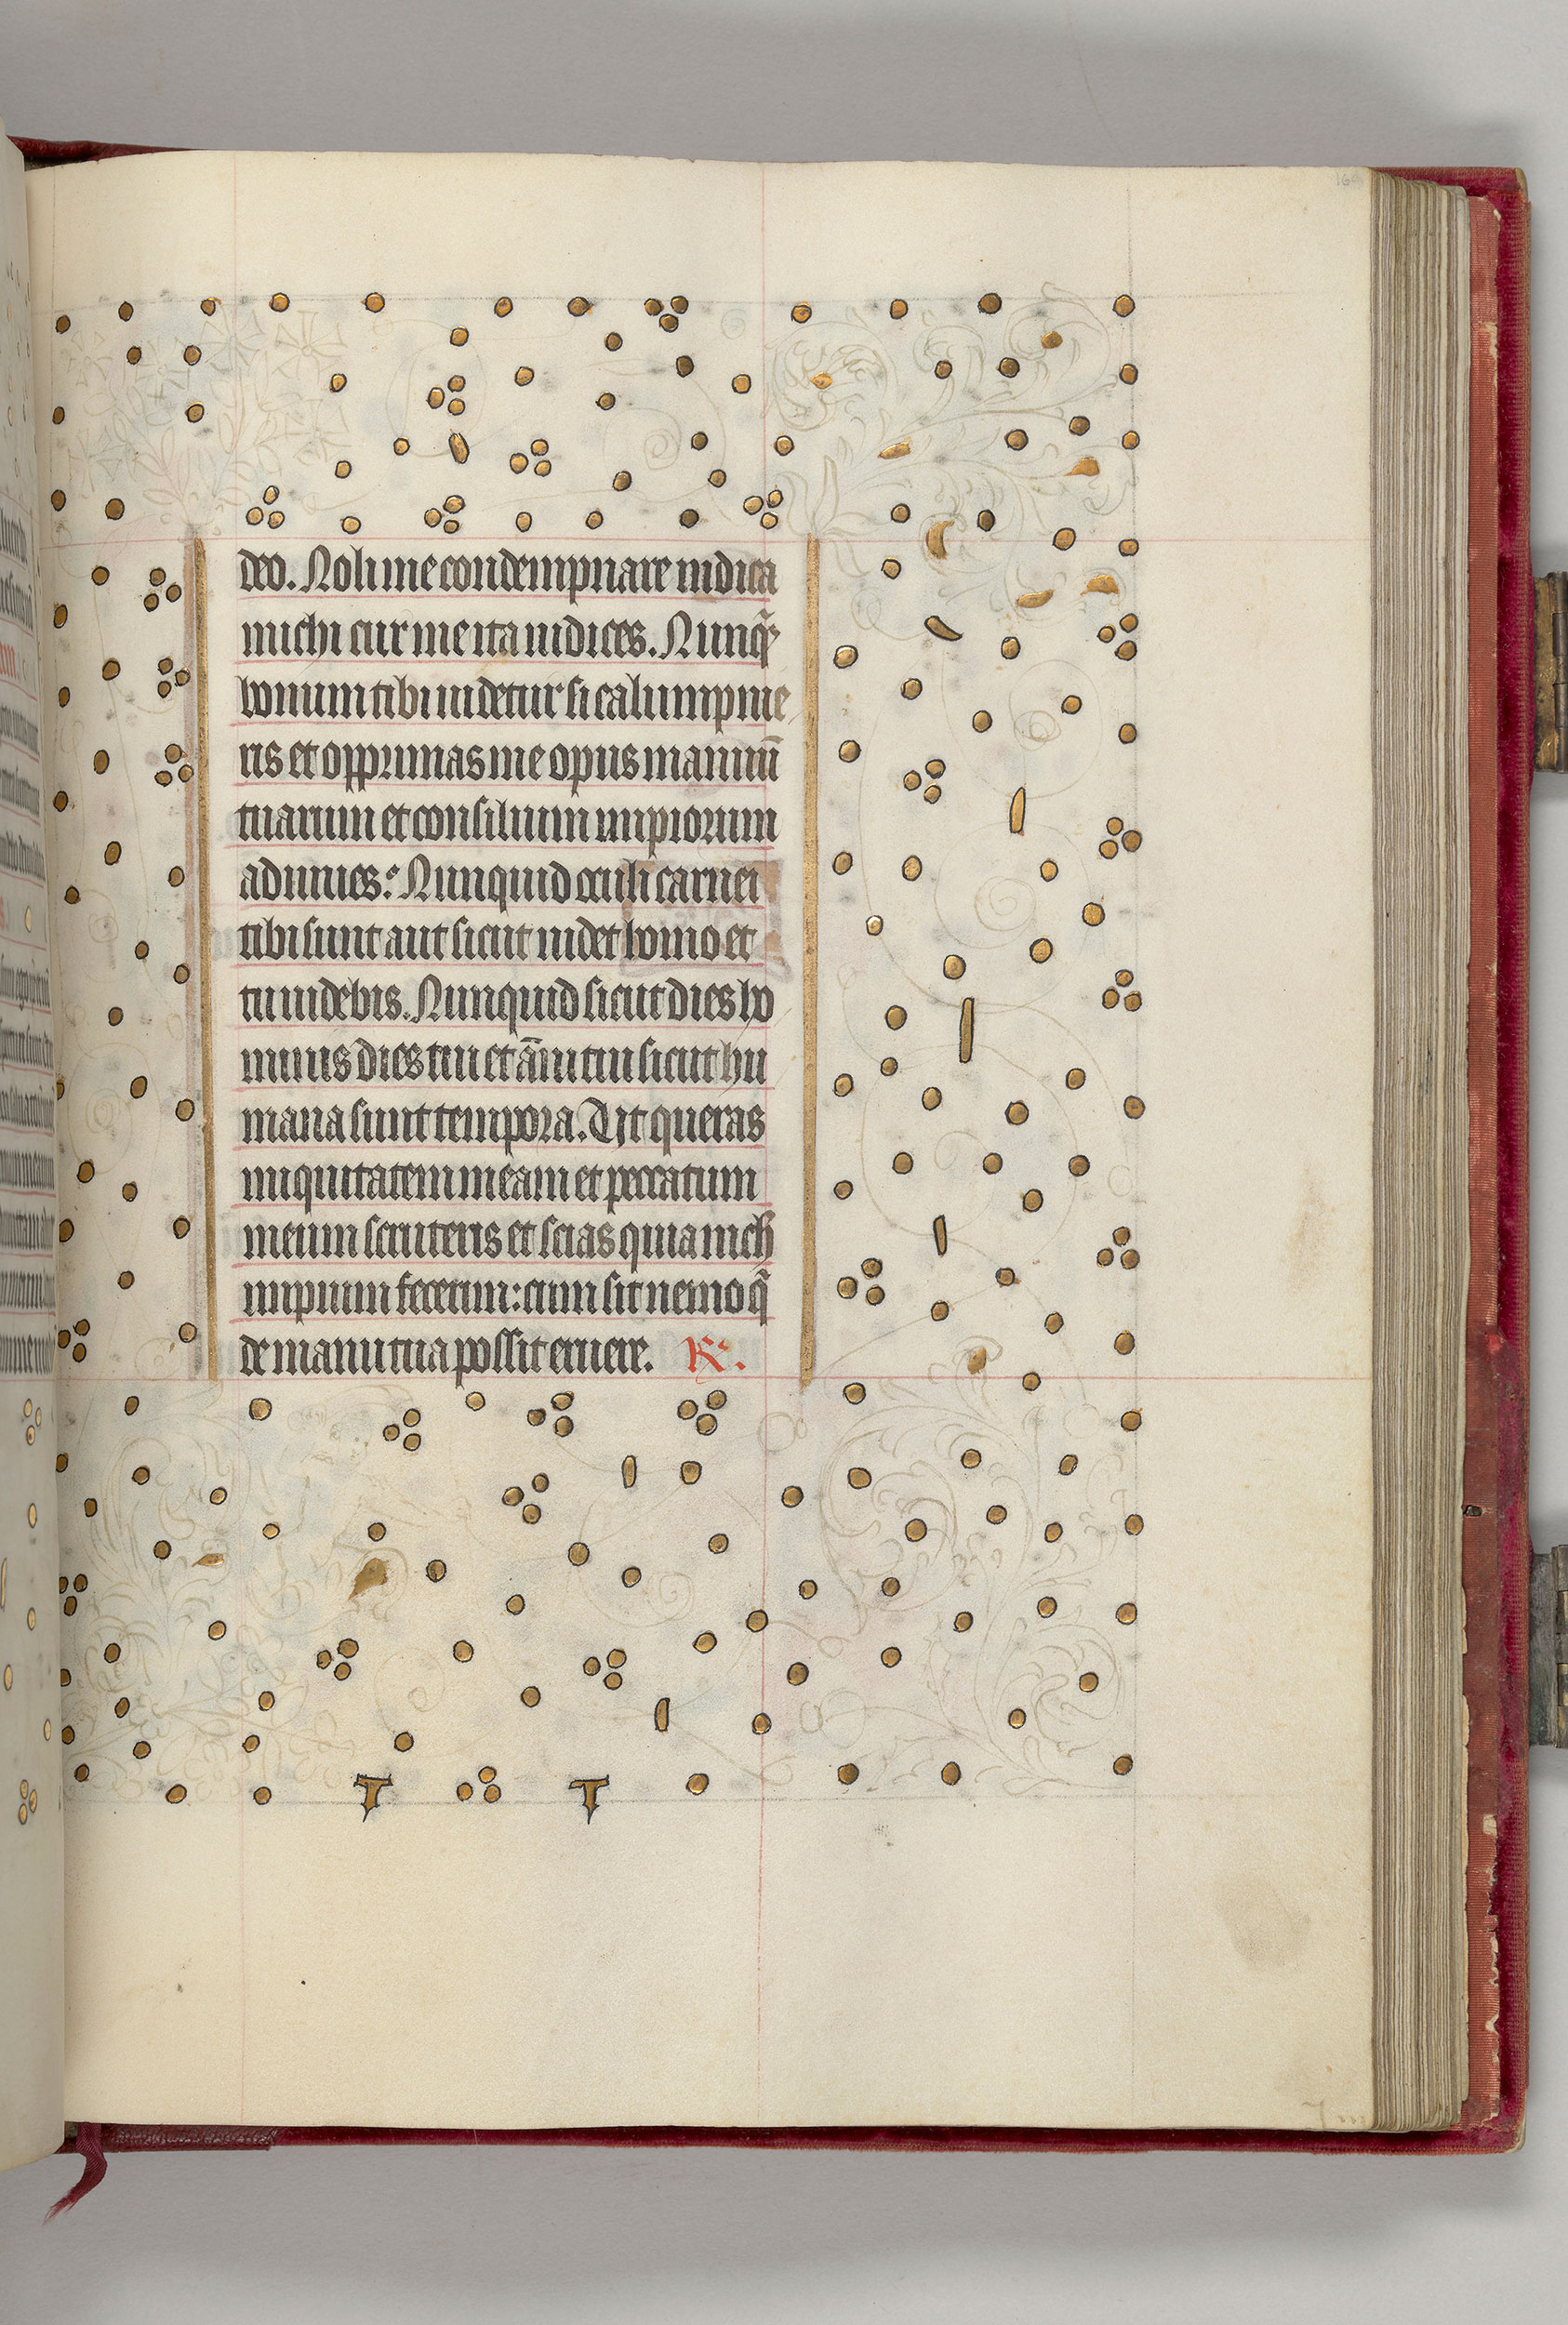 deo. Noli me condempnare indica
michi cur me ita iudices. Nunq̃
bonum tibi uidetur si calumpnie
ris et opprimas me opus manuū
tuarum et consilium impiorum
adiuues: Nunquid oculi carnei
tibi sunt aut sicut uidet homo et
tu uidebis. Nunquid sicut dies ho
minis dies tui et āni tui sicut hu
mana sunt tempora. Ut queras
iniquitatem meam et peccatum
meum scruteris et scias quia nich̄
impium fecerim: cum sit nemo q̄
de manu tua possit eruere. R̃.
T T